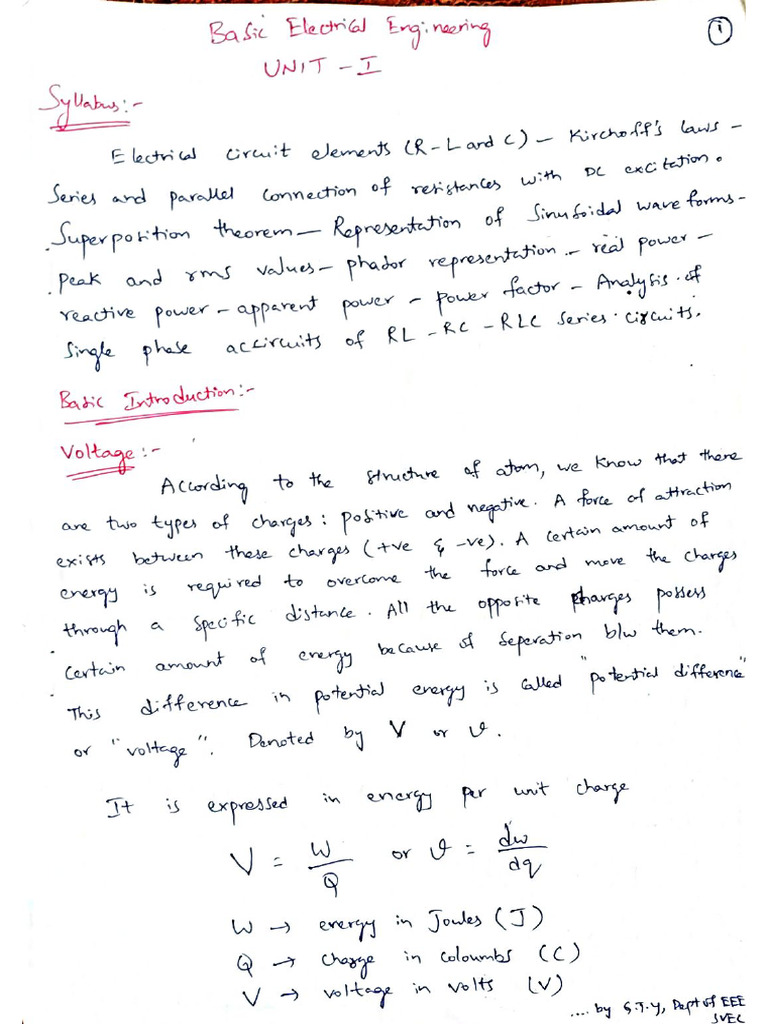 Basic Electrical Engineering
1
UNIT - I
Syllabus:-
Electrical circuit elements (R-L and C) - Kirchoff's laws -
Series and parallel connection of resistances with DC excitation.
Superposition theorem - Representation of Sinusoidal wave forms -
peak and rms values - phador representation - real power -
reactive power - apparent power - power factor - Analysis of
Single phase accircuits of RL - RC - RLC series circuits.
Basic Introduction:-
Voltage:-
According to the structure of atom, we know that there
are two types of charges: positive and negative. A force of attraction
exists between these charges (+ve & -ve). A certain amount of
energy is required to overcome the force and move the charges
through a specific distance. All the opposite charges possess
certain amount of energy because of seperation b/w them.
This difference in potential energy is called "potential difference"
or "voltage". Denoted by V or v.
It is expressed in energy per unit charge
V = W/Q or v = dw/dq
W → energy in Joules (J)
Q → charge in coloumbs (C)
V → voltage in volts (V)
.... by S.T.Y, Dept of EEE
SVEC